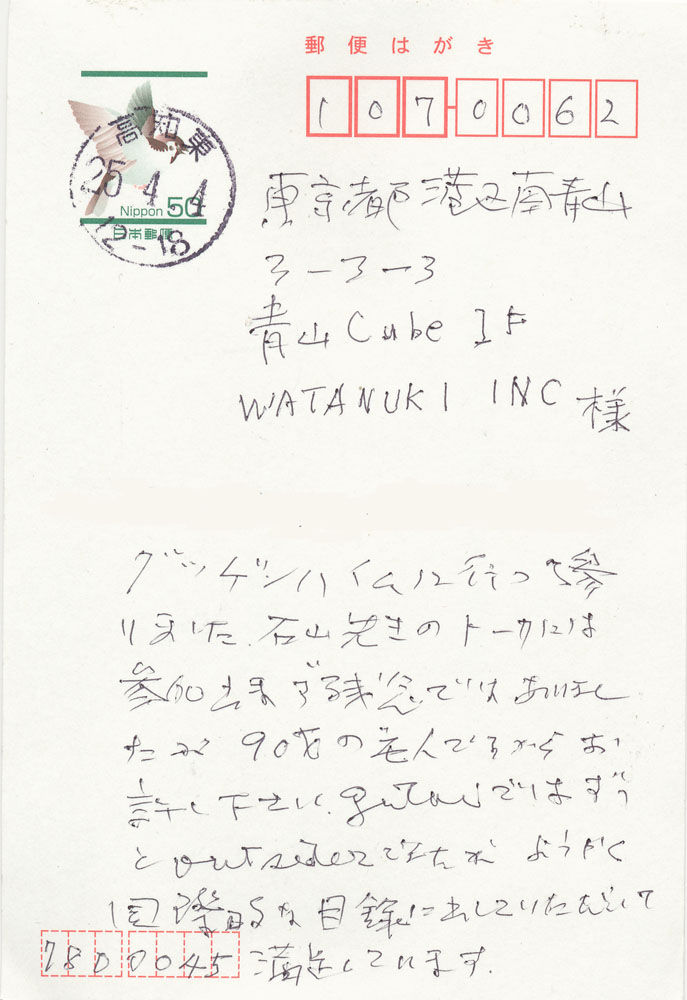 郵便はがき
107-0062
高知東
25.4.4
12-18
Nippon 50
日本郵便
東京都港区南青山
3-3-3
青山Cube 1F
WATANUKI INC 様
グッゲンハイムに行って参
りました。石山先生のトークには
参加出来ず残念ではありまし
たが 90才の老人ですからお
許し下さい。gutaiではずっ
とoutsiderでしたが ようやく
国際的な目録に出していただいて
満足しています。
7800045